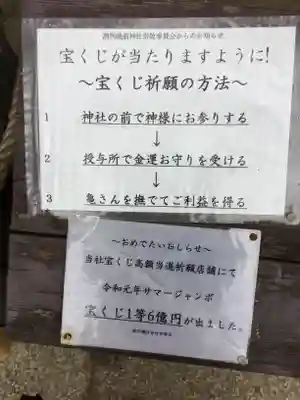 宝くじが当たりますように!
～宝くじ祈願の方法～
1 神社の前で神様にお参りする
↓
2 授与所で金運お守りを受ける
↓
3 亀さんを撫でてご利益を得る
～おめでたいおしらせ～
当社宝くじ高額当選祈願店舗にて
令和元年サマージャンボ
宝くじ1等6億円が出ました。